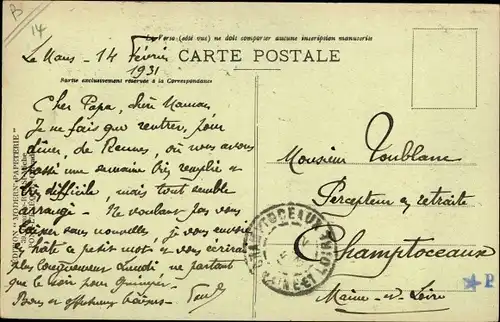 B
14
Le Verso (côté vu) ne doit comporter aucune inscription manuscrite
CARTE POSTALE
Le Mans - 14 Février
1931
Partie exclusivement réservée à la Correspondance
Cher Papa, chère Maman,
Je ne fais que rentrer, pour
dîner, de Rennes, où nous avons
passé une semaine très remplie et
très difficile, mais tout semble
arrangé. Ne voulant pas vous
laisser sans nouvelles, je vous envoie
à hâte ce petit mot et vous écrirai
plus longuement Lundi ne partant
que le soir pour
Bons et affectueux baisers.
Monsieur Toublanc
Percepteur en retraite
Champtoceaux
Maine-et-Loire
CHAMPTOCEAUX
MAINE-ET-LOIRE
P
MODERN PAPETERIE